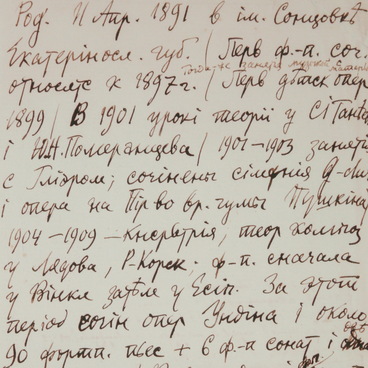 Род. 11 Апр. 1891 в им. Сонцовкѣ
Екатеріносл. губ. / Перв ф.-п. соч.
относятс к 1897 г. / Перв дѣтск опер
1899 / В 1901 урокі теоріі у С І Танѣев
і Ю.Н. Померанцева / 1901-1903 занят
с Гліэром; сочінены сімфнія G-dur
і опера на Пір во вр. чумы Пушкіна
1904-1909 - Консрвтрія, теор композ
у Лядова, Р-Корск; ф.-п. сначала
у Вінкл затѣм у Есіп. За этот
період сочін опер Ундіна і около
90 фортп. піес + 6 ф-п сонат і